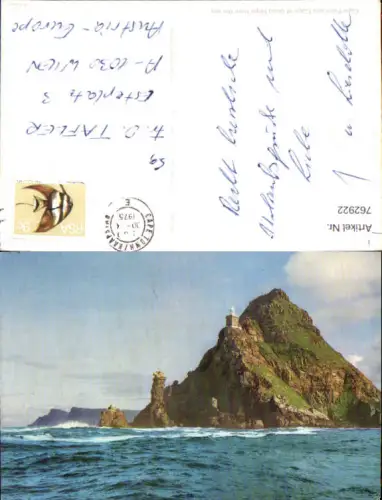 Cape Point and Cape of Good Hope from the sea
Recht herzliche
Urlaubsgrüße und
Liebe
Sg
Fr. O. TAFLER
Esteplatz 3
A-1030 WIEN
Austria-Europe
RSA 9c
CAPE TOWN/KAAPSTAD
1975
E
Artikel Nr.
762922